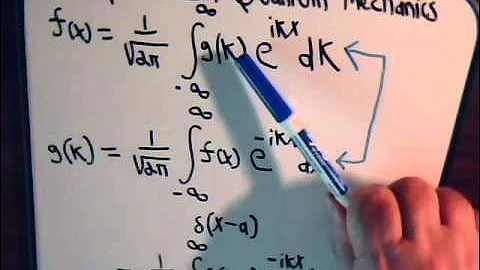 Quantum Mechanics
f(x) = 1/√2π ∫_{-∞}^{∞} g(k) e^{ikx} dk
g(k) = 1/√2π ∫_{-∞}^{∞} f(x) e^{-ikx} dx
δ(x-a)
∞
= 1 ∫ e^{-ikx}